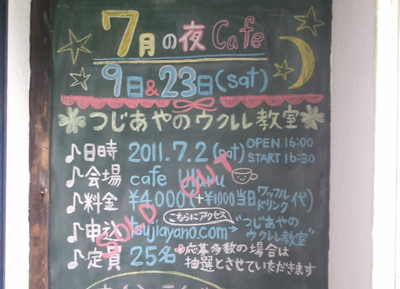 7月の夜Cafe
9日&23日(sat)
つじあやのウクレレ教室
♪日時 2011.7.2(sat) OPEN 16:00
START 16:30
♪会場 cafe Uluru
♪料金 ¥4,000(+¥1000当日ワッフルドリンク代)
こちらにアクセス
♪申込 tsujiayano.com→"つじあやのウクレレ教室"
♪定員 25名 応募多数の場合は
抽選とさせていただきます
SOLD OUT